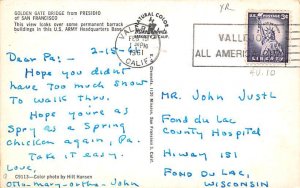 GOLDEN GATE BRIDGE from PRESIDIO
of SAN FRANCISCO
This view looks over some permanent barrack
buildings in this U.S. ARMY Headquarters Base.
2-15-61
Dear Pa:-
Hope you didn't
have too much snow
to walk thru.
Hope you're as
spry as a Spring
chicken again, Pa.
Take it easy.
Love,
Otto-mary-ortha-John
C9113—Color photo by Hilt Hansen
1961
CALIF.
VALL
ALL AMERICA
3¢
LIBERTY
YR
AU.10
MR. JOHN JUSTL
FOND DU LAC
COUNTY HOSPITAL
HIWAY 151
FOND DU LAC,
WISCONSIN